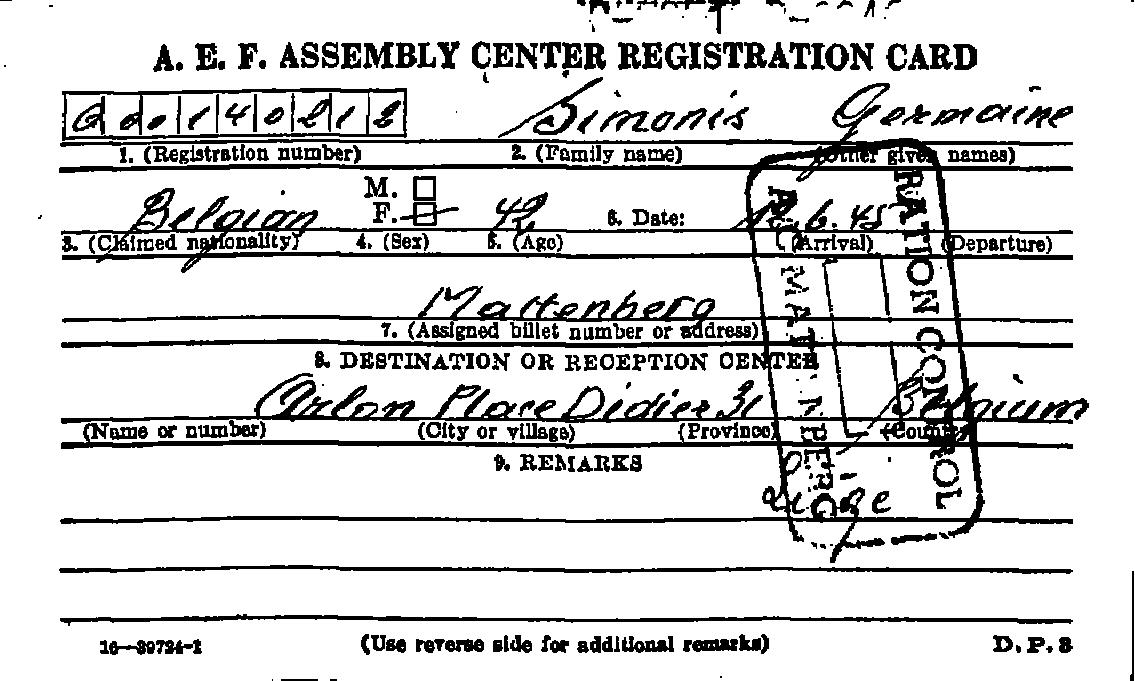 A. E. F. ASSEMBLY CENTER REGISTRATION CARD
Simonis Germaine
1. (Registration number) 2. (Family name) (Other given names)
M.
Belgian F. 42 6. Date: 12.6.45
3. (Claimed nationality) 4. (Sex) 5. (Age) (Arrival) (Departure)
Mattenberg
7. (Assigned billet number or address)
8. DESTINATION OR RECEPTION CENTER
Arlon Place Didier 31 Belgium
(Name or number) (City or village) (Province) (Country)
9. REMARKS
RATION CONTROL
MATTENBERG
16—39724-1 (Use reverse side for additional remarks) D.P.3